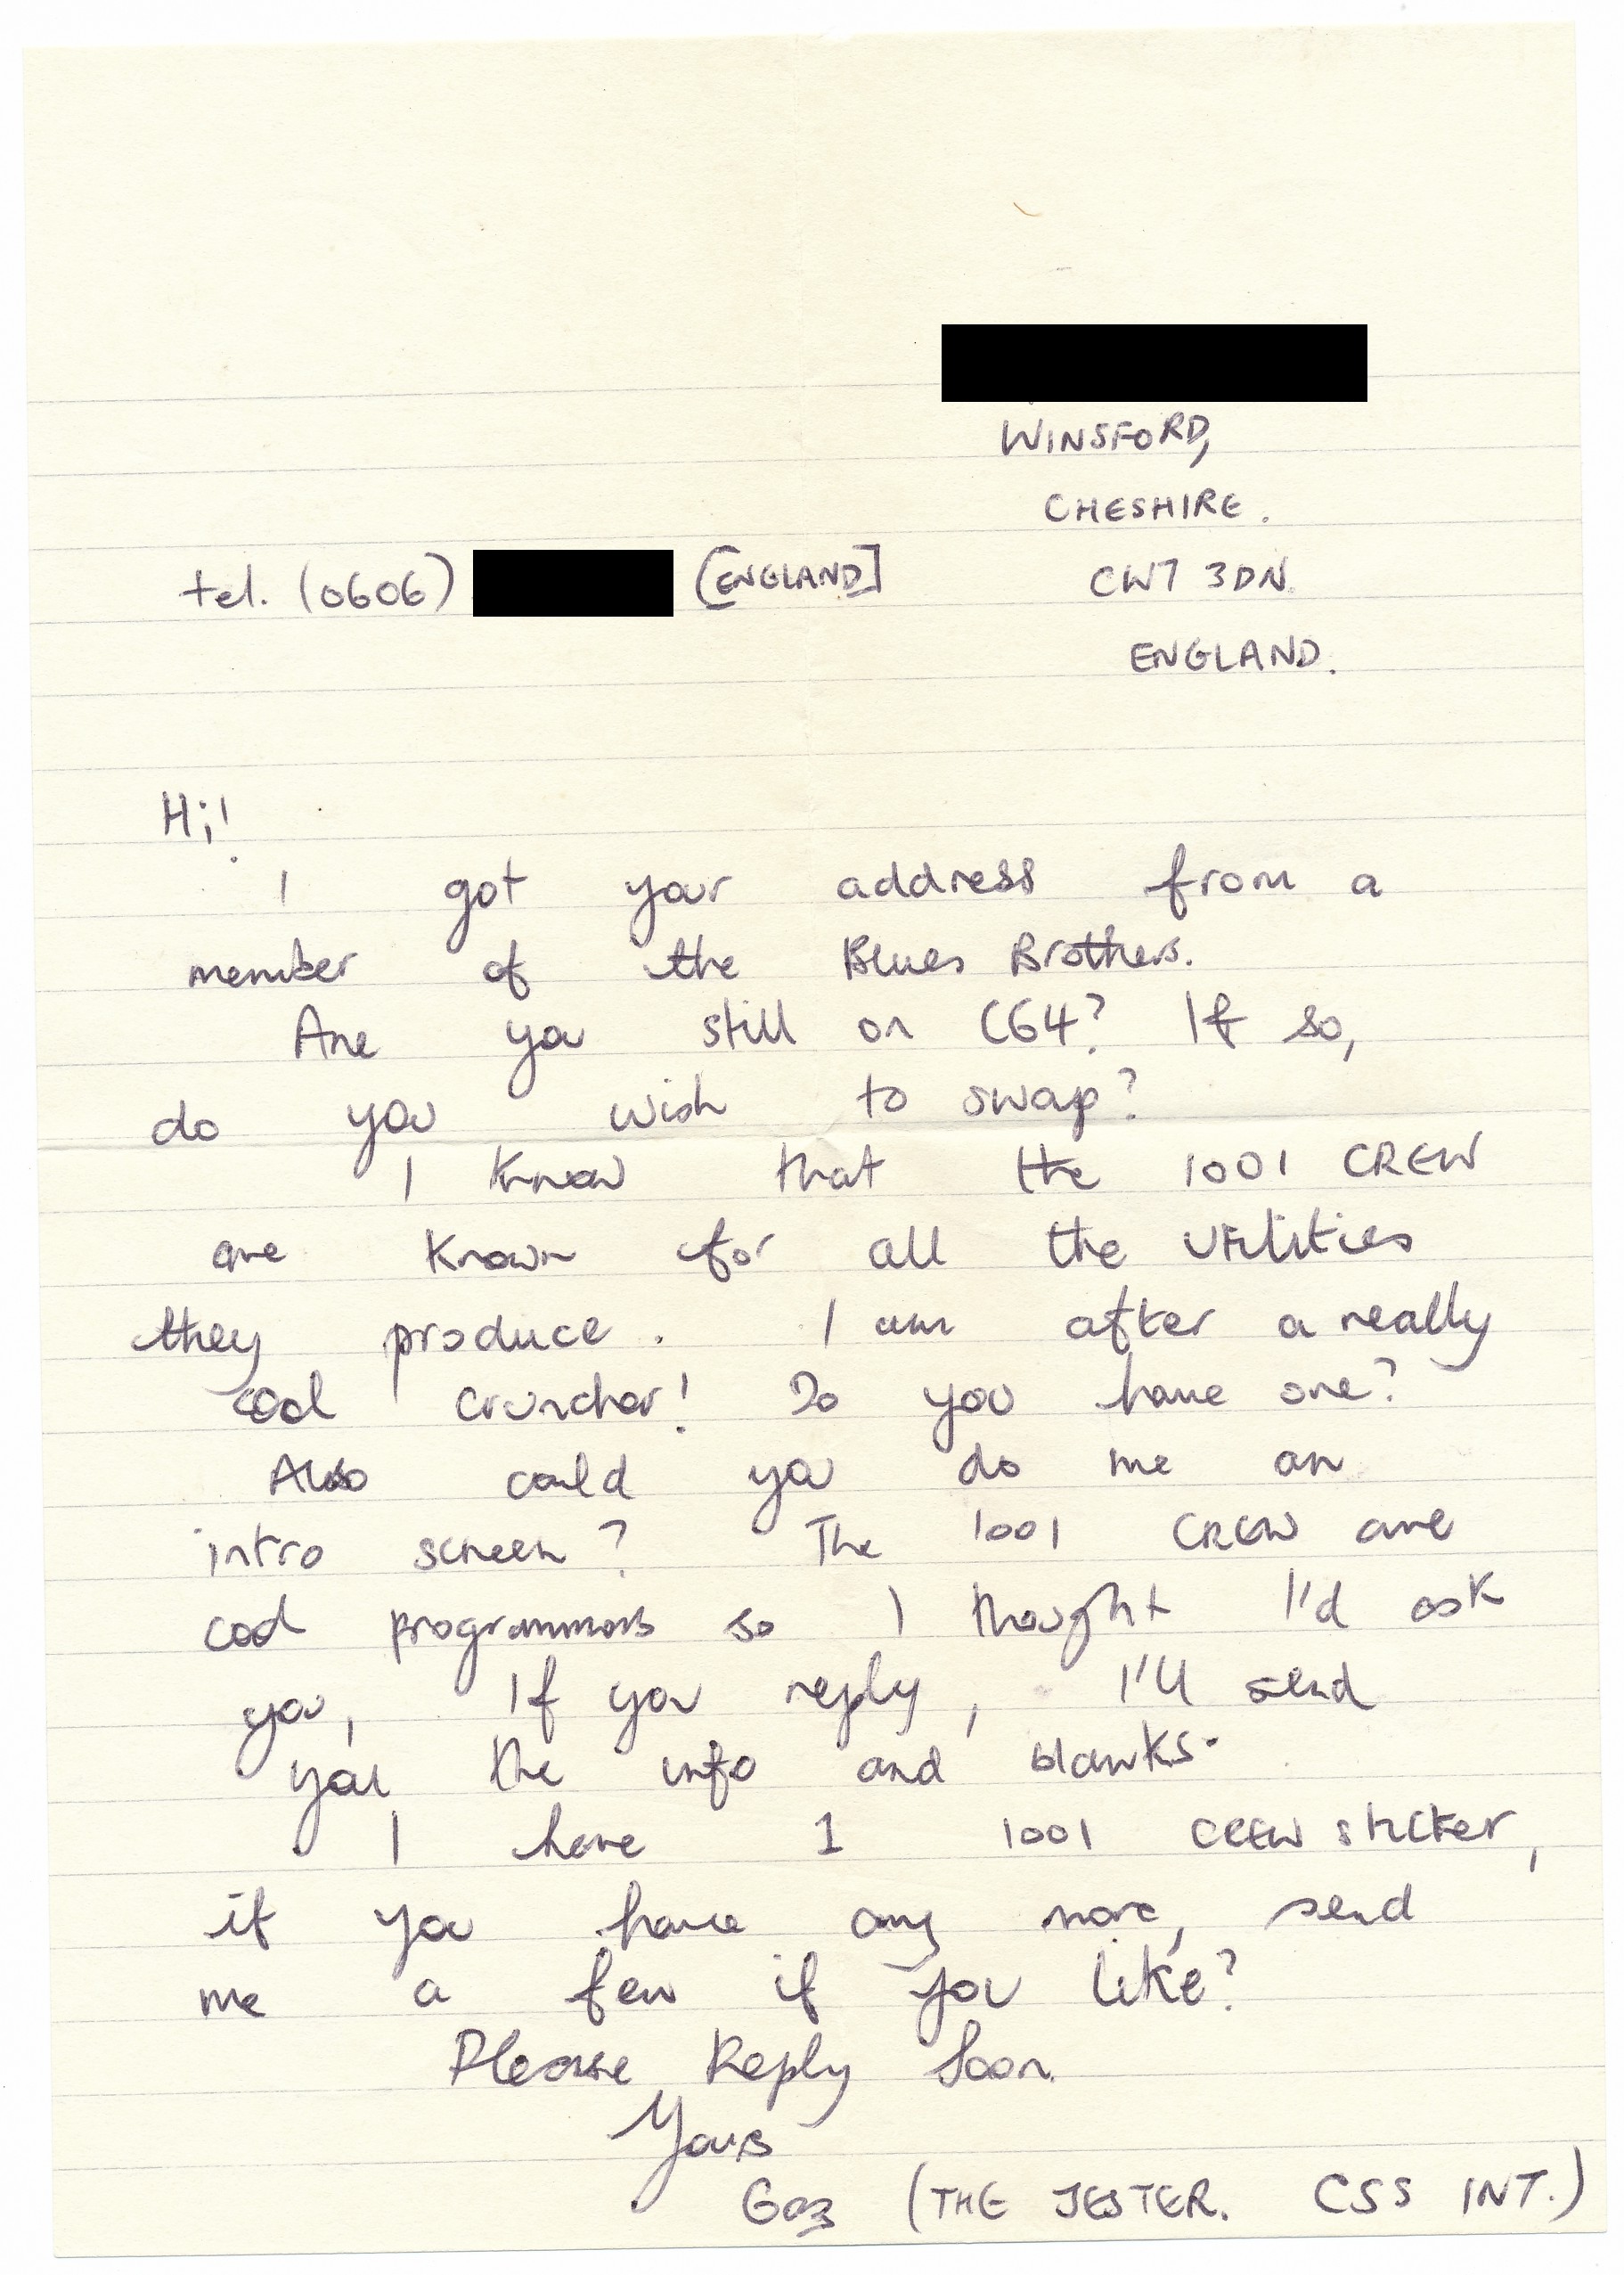 WINSFORD,
CHESHIRE.
tel. (0606) [ENGLAND] CW7 3DN.
ENGLAND.
Hi!
I got your address from a
member of the Blues Brothers.
Are you still on C64? If so,
do you wish to swap?
I know that the 1001 CREW
are known for all the utilities
they produce. I am after a really
cool cruncher! Do you have one?
Also could you do me an
intro screen? The 1001 CREW are
cool programmers so I thought I'd ask
you, If you reply, I'll send
you the info and blanks.
I have 1 1001 CREW sticker,
if you have any more, send
me a few if you like?
Please Reply Soon.
Yours
Gaz (THE JESTER. CSS INT.)